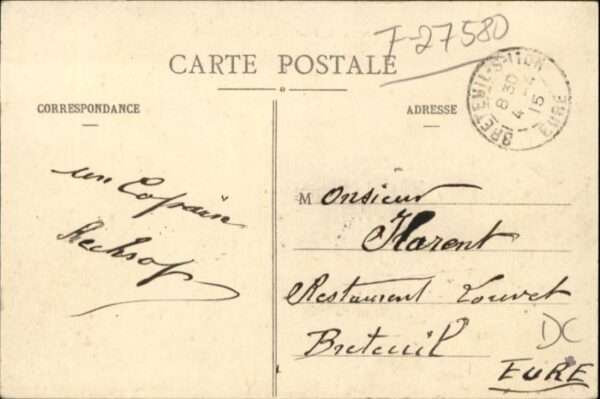 F-27580
CARTE POSTALE
BRETEUIL-S-ITON
8 30
4 - 4
15
EURE
CORRESPONDANCE
ADRESSE
un Copain
Monsieur
Florent
Restaurent Louvet
Breteuil
DC
EURE